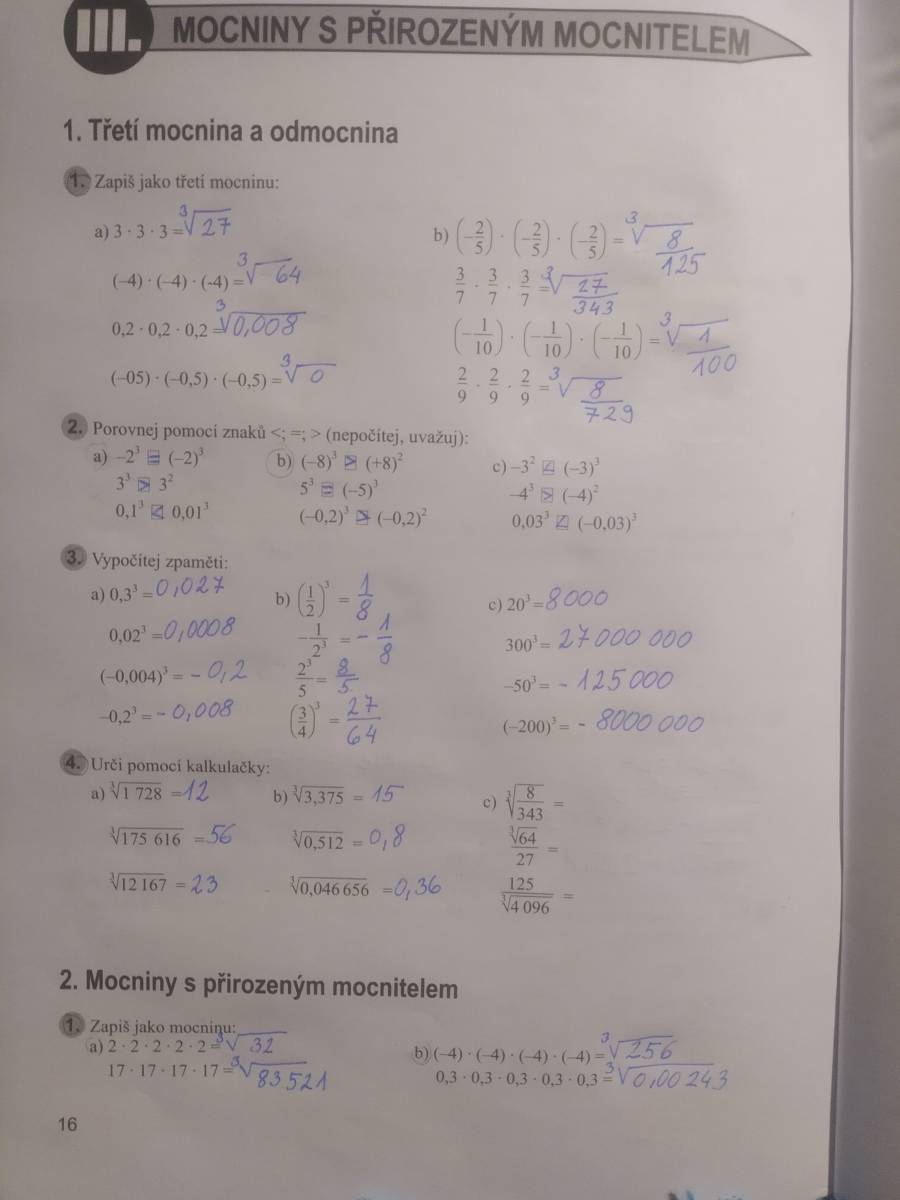 III. MOCNINY S PŘIROZENÝM MOCNITELEM
1. Třetí mocnina a odmocnina
1. Zapiš jako třetí mocninu:
a) 3 · 3 · 3 = ∛27
(–4) · (–4) · (-4) = ∛64
0,2 · 0,2 · 0,2 = ∛0,008
(–05) · (–0,5) · (–0,5) = ∛0
b) (–2/5) · (–2/5) · (–2/5) = ∛8/125
3/7 · 3/7 · 3/7 = ∛27/343
(–1/10) · (–1/10) · (–1/10) = ∛1/100
2/9 · 2/9 · 2/9 = ∛8/729
2. Porovnej pomocí znaků <; =; > (nepočítej, uvažuj):
a) –2³ = (–2)³
3³ > 3²
0,1³ < 0,01³
b) (–8)³ > (+8)²
5³ = (–5)³
(–0,2)³ > (–0,2)²
c) –3² < (–3)³
–4³ > (–4)²
0,03³ < (–0,03)³
3. Vypočítej zpaměti:
a) 0,3³ = 0,027
0,02³ = 0,0008
(–0,004)³ = – 0,2
–0,2³ = – 0,008
b) (1/2)³ = 1/8
–1/2³ = – 1/8
2³/5 = 8/5
(3/4)³ = 27/64
c) 20³ = 8000
300³ = 27 000 000
–50³ = – 125 000
(–200)³ = – 8000 000
4. Urči pomocí kalkulačky:
a) ∛1 728 = 12
∛175 616 = 56
∛12 167 = 23
b) ∛3,375 = 15
∛0,512 = 0,8
∛0,046 656 = 0,36
c) ∛8/343 =
∛64/27 =
125/∛4 096 =
2. Mocniny s přirozeným mocnitelem
1. Zapiš jako mocninu:
a) 2 · 2 · 2 · 2 · 2 = ∛32
17 · 17 · 17 · 17 = ∛83 521
b) (–4) · (–4) · (–4) · (–4) = ∛256
0,3 · 0,3 · 0,3 · 0,3 · 0,3 = ∛0,00 243
16